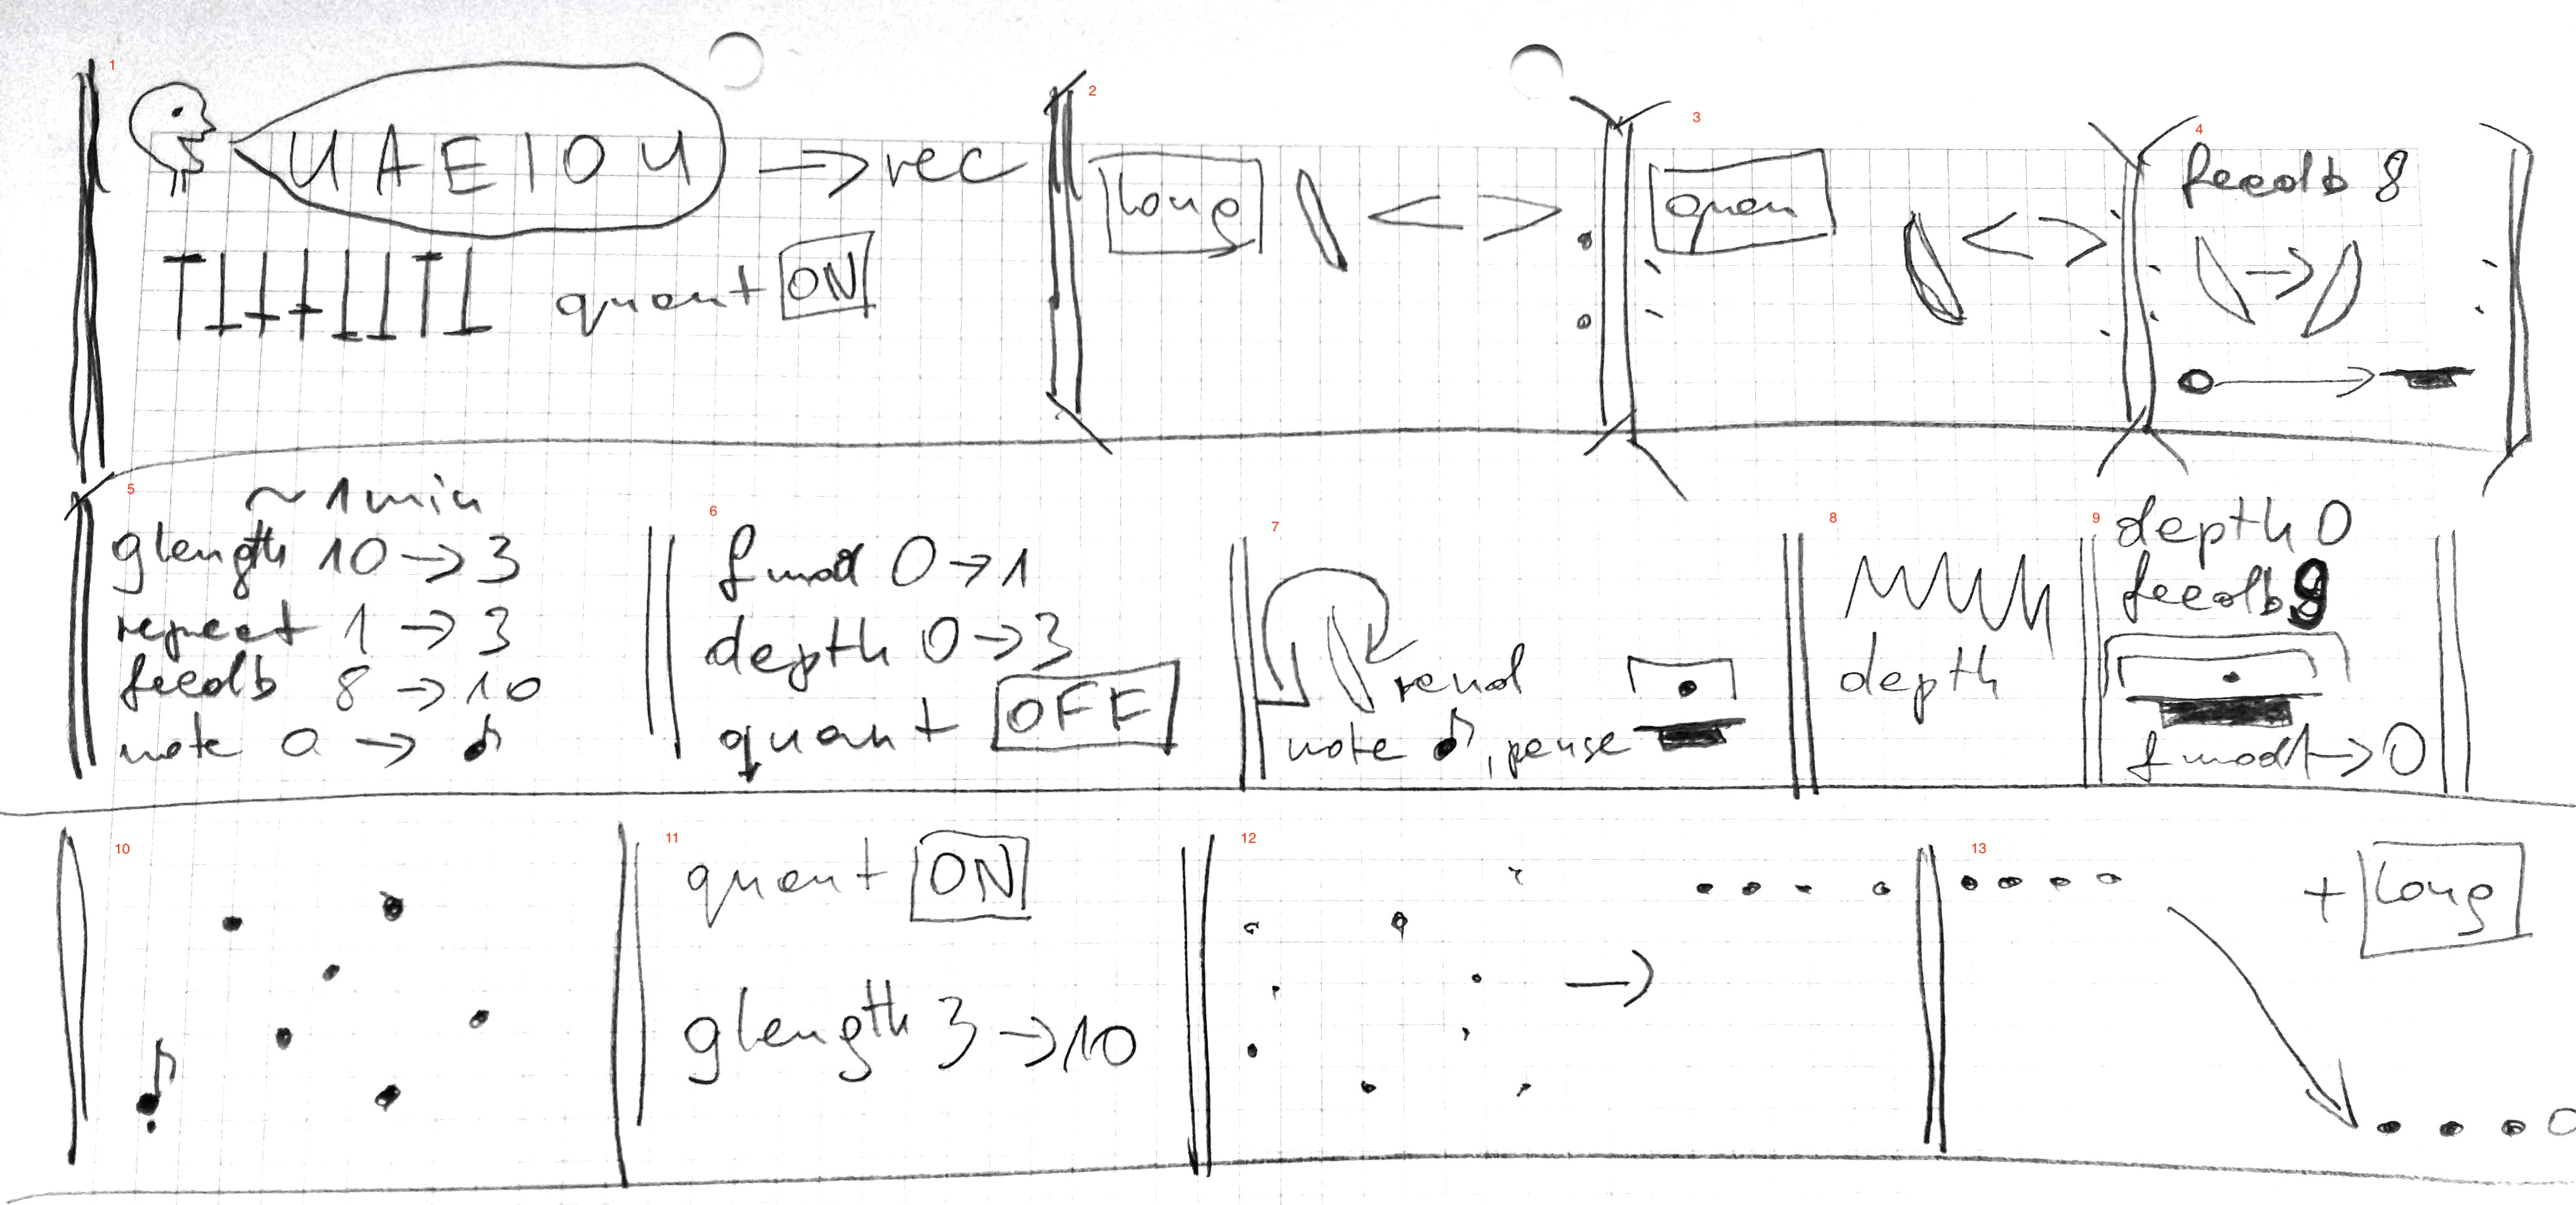 1
U A E I O U → rec
quant ON
2
long < >
3
open < >
4
feedb 8
5
~ 1 min
glength 10 → 3
repeat 1 → 3
feedb 8 → 10
note o → ♪
6
fmod 0 → 1
depth 0 → 3
quant OFF
7
rand
note ♪, pause
8
depth
9
depth 0
feedb 8
fmod 1 → 0
10
11
quant ON
glength 3 → 10
12
13
+ long